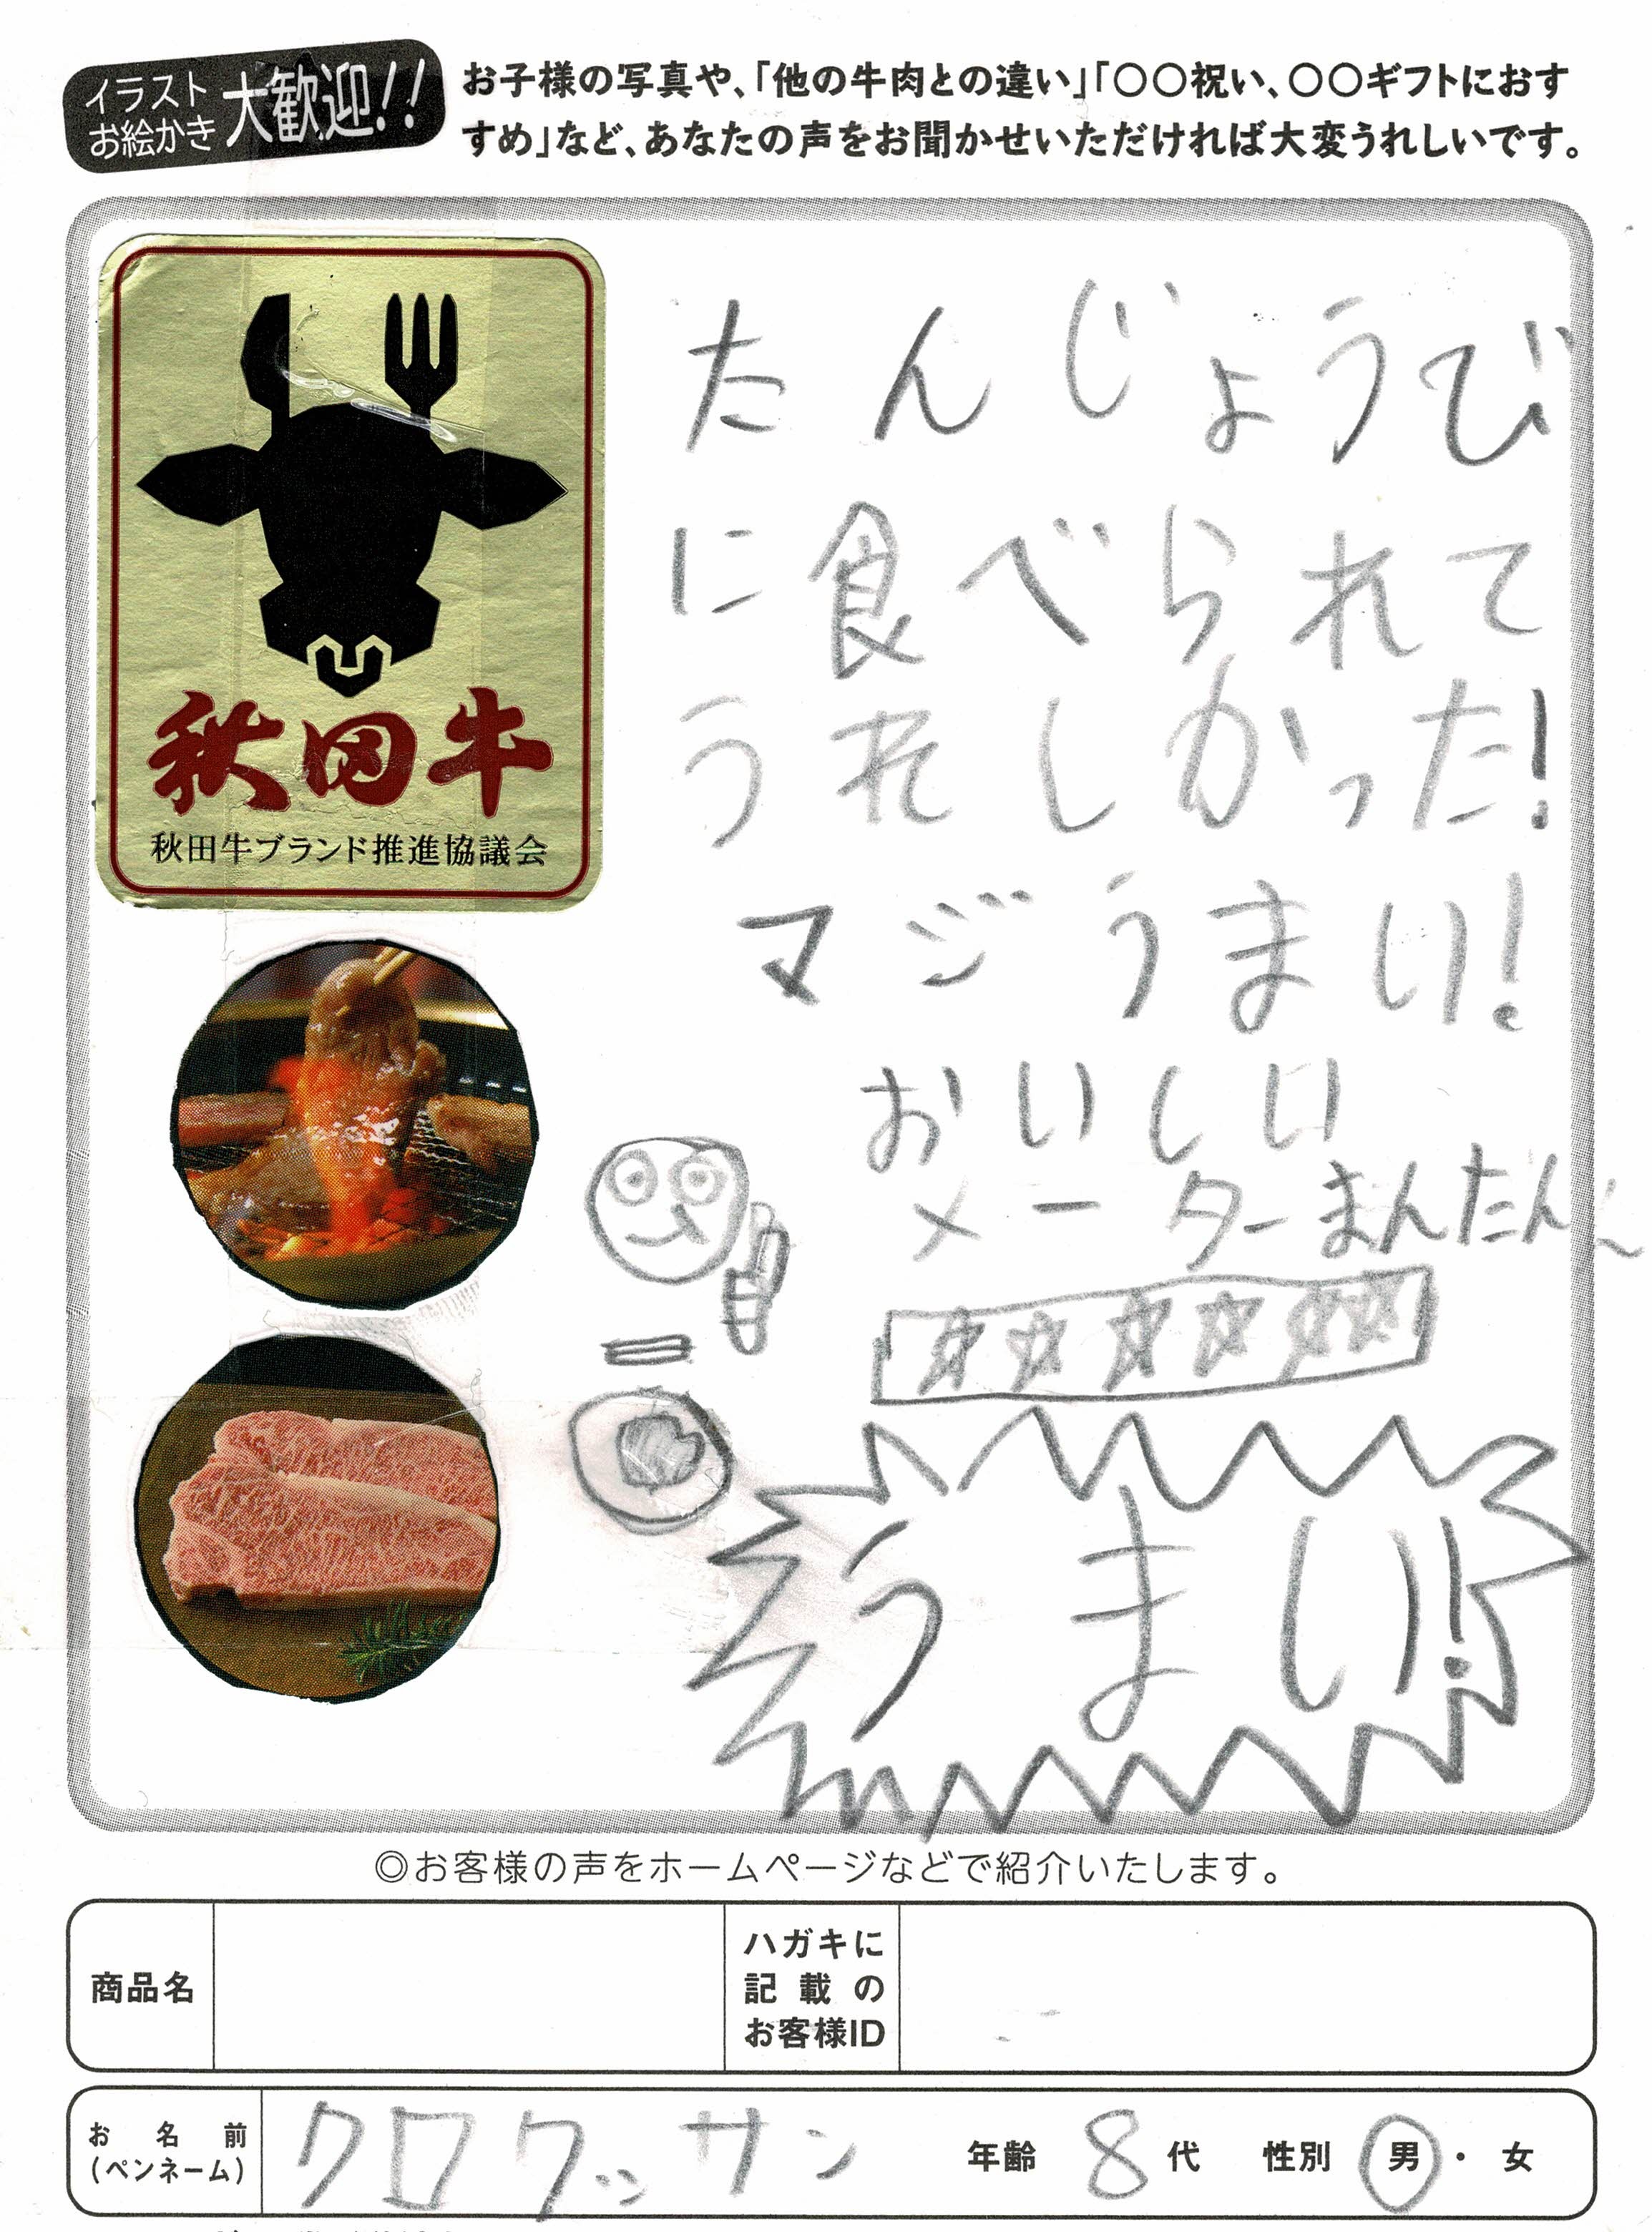 イラスト
お絵かき
大歓迎!!
お子様の写真や、「他の牛肉との違い」「〇〇祝い、〇〇ギフトにおす
すめ」など、あなたの声をお聞かせいただければ大変うれしいです。
秋田牛
秋田牛ブランド推進協議会
たんじょうび
に食べられて
うれしかった!
マジうまい!
おいしい
メーターまんたん〜
うまい!
◎お客様の声をホームページなどで紹介いたします。
商品名
ハガキに
記載の
お客様ID
お名前
(ペンネーム)
クロワッサン
年齢 8 代 性別 男・女